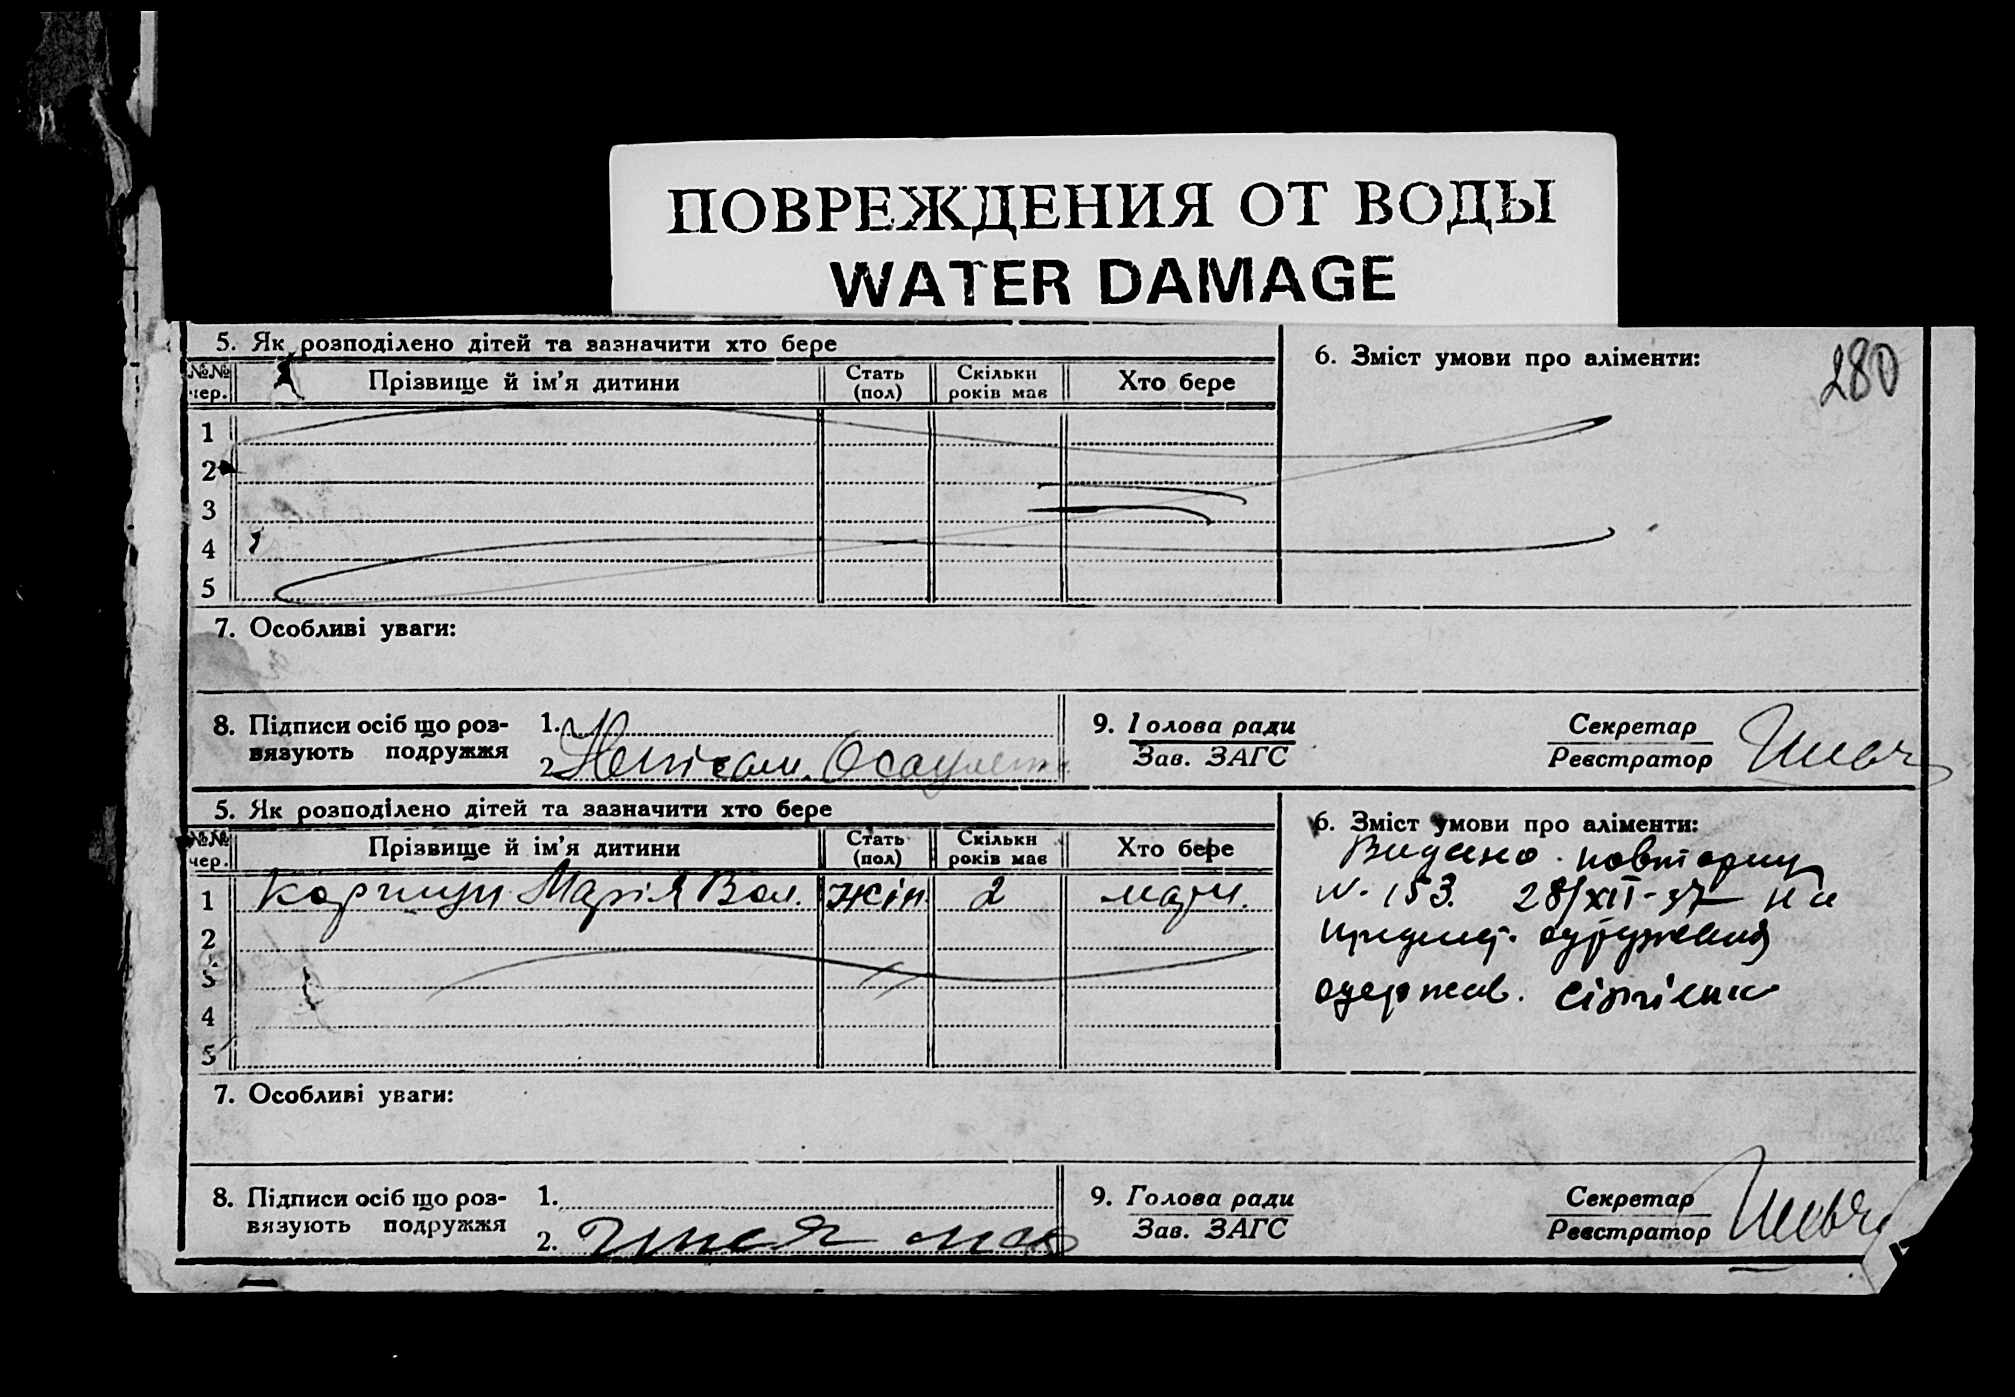 ПОВРЕЖДЕНИЯ ОТ ВОДЫ
WATER DAMAGE
280
5. Як розподілено дітей та вазначити хто бере
№№ чер. Прізвище й ім'я дитини Стать (пол) Скільки років має Хто бере
1
2
3
4
5
6. Зміст умови про аліменти:
7. Особливі уваги:
8. Підписи осіб що роз-
вязують подружжя
1.
2.
9. Голова ради
Зав. ЗАГС
Секретар
Реєстратор
5. Як розподілено дітей та зазначити хто бере
№№ чер. Прізвище й ім'я дитини Стать (пол) Скільки років має Хто бере
1 Коршун Марія Вол. жін. 2 мати.
2
3
4
5
6. Зміст умови про аліменти:
Видано повторну
№ 153. 28/XII-37 на
одруження
одержав.
7. Особливі уваги:
8. Підписи осіб що роз-
вязують подружжя
1.
2.
9. Голова ради
Зав. ЗАГС
Секретар
Реєстратор